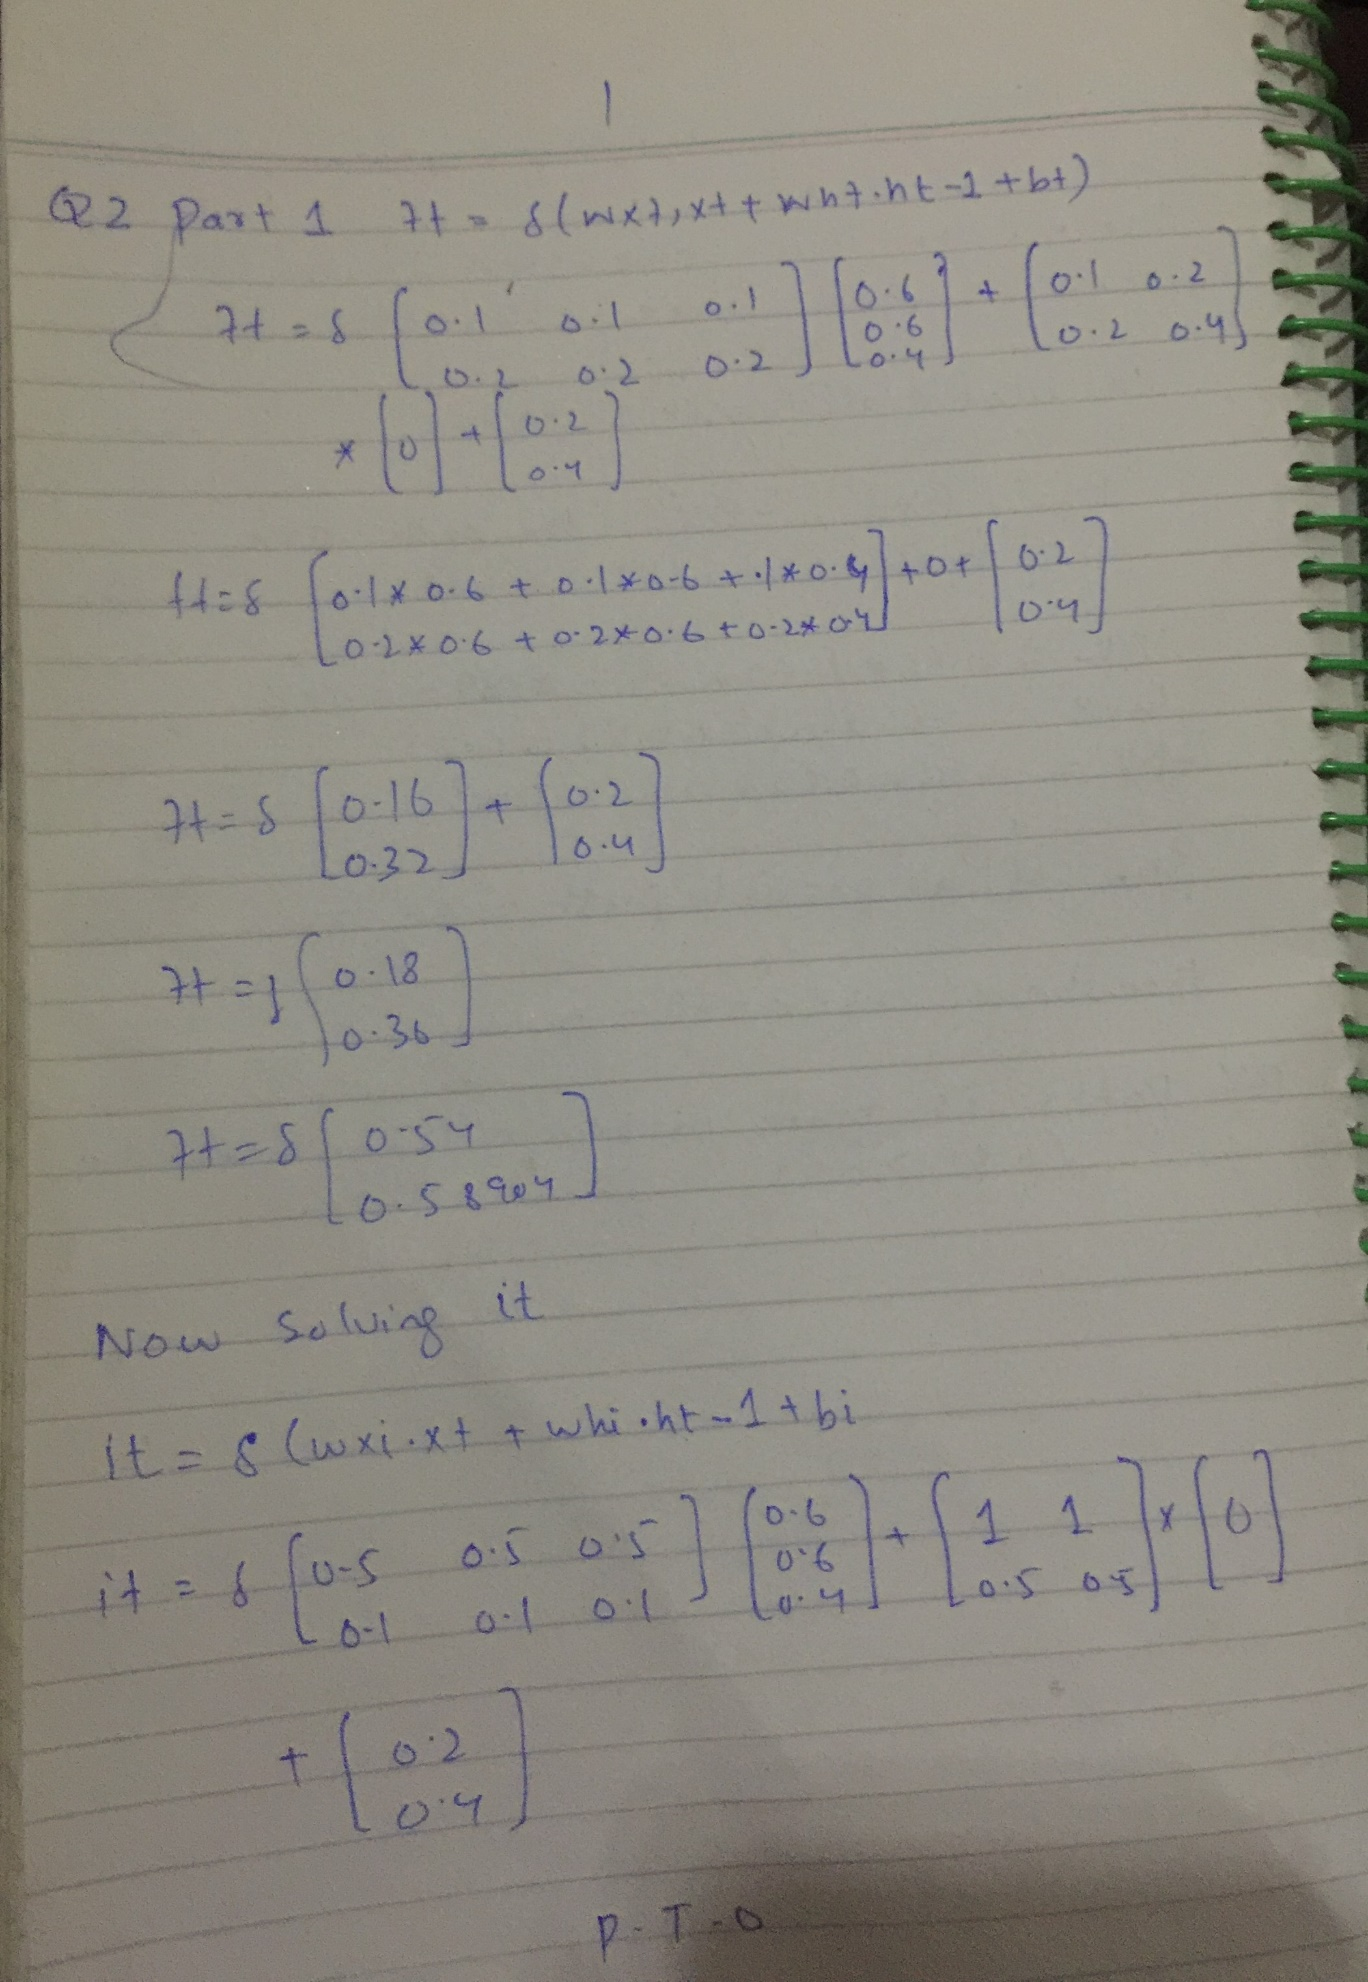 1
Q2 Part 1 ft = δ(wxf, xt + whf.ht-1 + bt)
ft = δ [0.1 0.1 0.1] [0.6] + [0.1 0.2]
0.6
0.2 0.2 0.2 0.4 0.2 0.4
* [0] + [0.2
0.4]
ft = δ [0.1*0.6 + 0.1*0.6 + .1*0.4] + 0 + [0.2
0.2*0.6 + 0.2*0.6 + 0.2*0.4 0.4]
ft = δ [0.16] + [0.2
0.32 0.4]
ft = δ [0.18
0.36]
ft = δ [0.54
0.58904]
Now solving it
it = δ (wxi.xt + whi.ht-1 + bi
it = δ [0.5 0.5 0.5] [0.6] + [1 1] x [0]
0.6
0.1 0.1 0.1 0.4 0.5 0.5
+ [0.2
0.4]
P.T.O